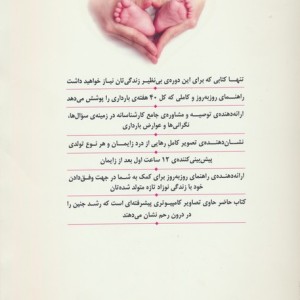 تنهـا کتابی که برای این دوره‌ی بی‌نظیر زندگی‌تان نیاز خواهید داشت
راهنمای روزبه‌روز و کاملی که کل ۴۰ هفته‌ی بارداری را پوشش می‌دهد
ارائه‌دهنده‌ی توصیـه و مشاوره‌ی جامع کارشناسانه در زمینه‌ی سؤال‌ها،
نگرانی‌ها و عوارض بارداری
نشـان‌دهنـده‌ی تصویر کاملِ رهایی از درد زایمـان و هر نوع تولدی
پیش‌بینی‌کننده‌ی ۱۲ ساعت اول بعد از زایمان
ارائه‌دهنـده‌ی راهنمای روزبه‌روز برای کمک به شما در جهت وفق‌دادن
خود با زندگی نوزاد تازه متولد شده‌تان
کتاب حاضر حاوی تصاویر کامپیوتری پیشرفته‌ای است که رشـد جنین را
در درون رحم نشان می‌دهند